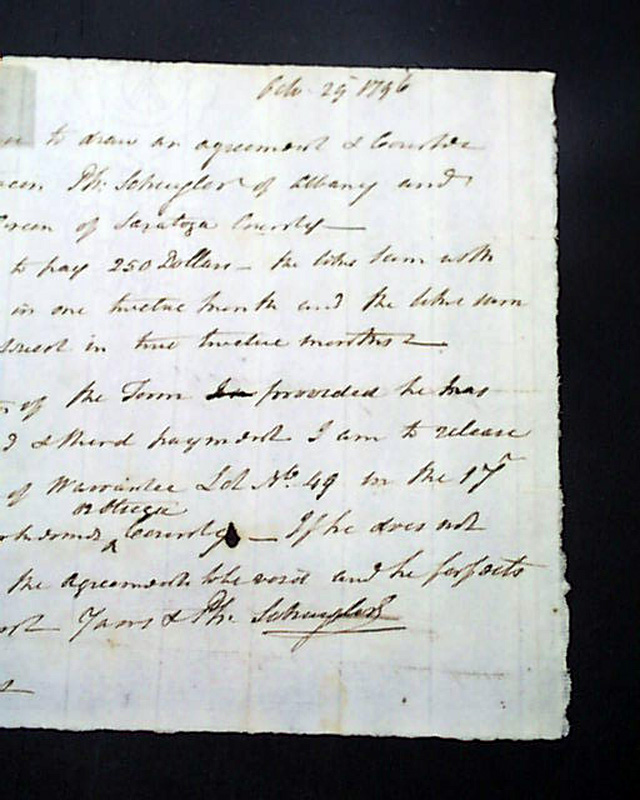 Feb. 25 1796
to draw an agreement & Counter
Ph: Schuyler of Albany and
of Saratoga County —
to pay 250 Dollars — the like sum with
in one twelve month and the like sum
in two twelve months
of the Term In provided he has
& third payment I am to release
of Warrantee Lot No. 49 in the 17
Otsego
County — If he does not
the agreement to be void and he forfeits
Yours & Ph. Schuyler